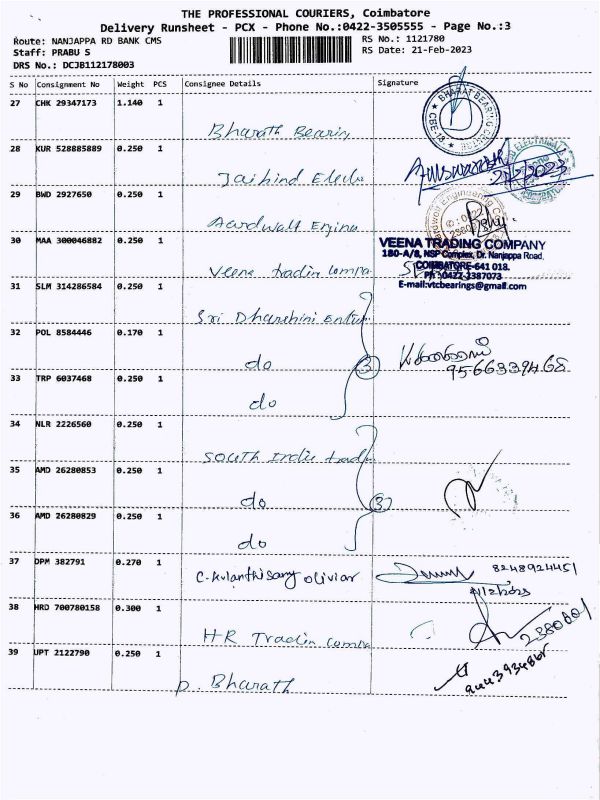 THE PROFESSIONAL COURIERS, Coimbatore
Delivery Runsheet - PCX - Phone No.:0422-3505555 - Page No.:3
Route: NANJAPPA RD BANK CMS
RS No.: 1121780
Staff: PRABU S
RS Date: 21-Feb-2023
DRS No.: DCJB112178003
S No Consignment No Weight PCS Consignee Details Signature
27 CHK 29347173 1.140 1
Bharath Bearin
BHARAT BEARING CENTRE
CBE-18
28 KUR 528885889 0.250 1
Jaihind Elect
21/2/2023
29 BWD 2927650 0.250 1
Aardwalt Engine
30 MAA 300046882 0.250 1
Veene tradin compa
VEENA TRADING COMPANY
180-A/8, NSP Complex, Dr. Nanjappa Road,
COIMBATORE-641 018.
Ph :0422-2387073
E-mail:vtcbearings@gmail.com
31 SLM 314286584 0.250 1
Sri Dharshini Enter
32 POL 8584446 0.170 1
do
3
9566339468
33 TRP 6037468 0.250 1
do
34 NLR 2226560 0.250 1
South Indie trad
35 AMD 26280853 0.250 1
do
3
36 AMD 26280829 0.250 1
do
37 DPM 382791 0.270 1
C. Kulanthisamy oliviar
8248924451
38 HRD 700780158 0.300 1
HR Tradin compa
2380801
39 UPT 2122790 0.250 1
P. Bharath